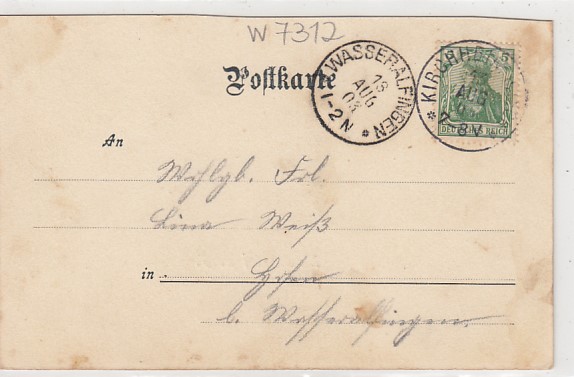 W 7312
Postkarte
WASSERALFINGEN
18
AUG
03
1-2N
KIRCHHEIM
AUG
7-8V
DEUTSCHES REICH
An
Wohlgb. Frl.
Lina Weiß
in Hofen
b. Wasseralfingen.